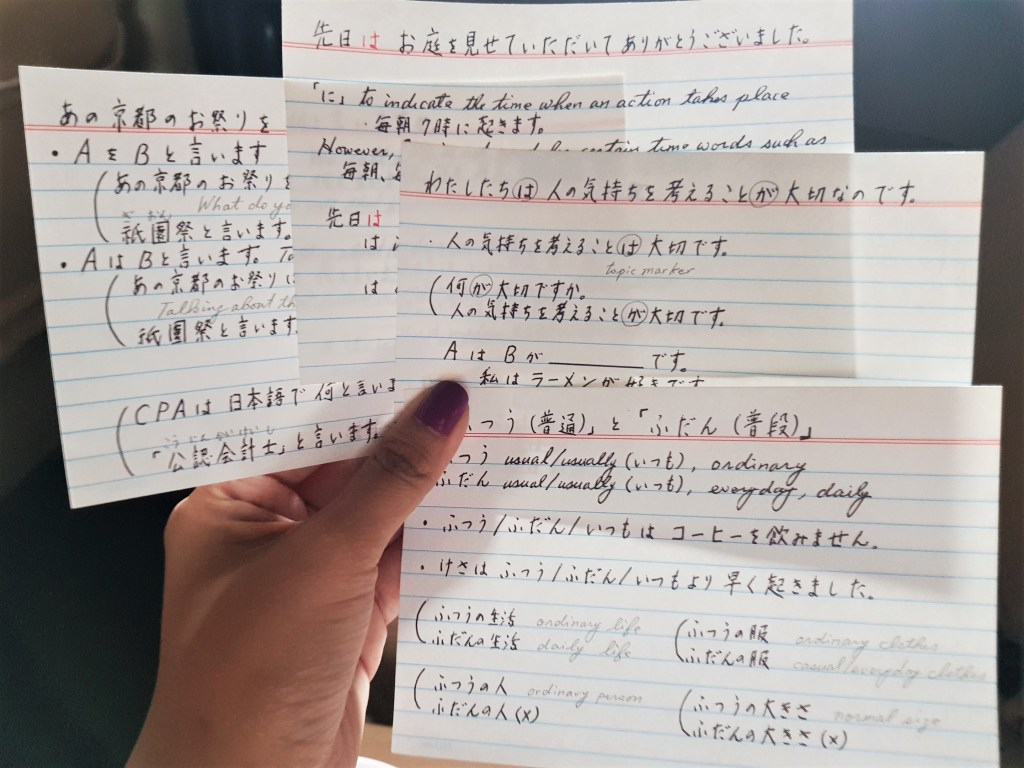 先日は お庭を見せていただいてありがとうございました。
「に」 to indicate the time when an action takes place
・毎朝7時に起きます。
However, certain time words such as
毎朝、
先日は
は
は
あの京都のお祭りを
・AをBと言います
あの京都のお祭りを
What do yo
ぎおん
祇園祭と言います。
・AはBと言います。
あの京都のお祭りは
Talking about th
祇園祭と言います
CPAは日本語で何と言いま
こうにんかいけいし
「公認会計士」と言います。
わたしたちは人の気持ちを考えることが大切なのです。
・人の気持ちを考えることは大切です。
topic marker
何が大切ですか。
人の気持ちを考えることが大切です。
AはBが______です。
私はラーメンが好きです
つう(普通)」と「ふだん(普段)」
つう usual/usually (いつも), ordinary
ふだん usual/usually (いつも), everyday, daily
・ふつう/ふだん/いつもはコーヒーを飲みません。
・けさはふつう/ふだん/いつもより早く起きました。
ふつうの生活 ordinary life
ふだんの生活 daily life
ふつうの服 ordinary clothes
ふだんの服 casual/everyday clothes
ふつうの人 ordinary person
ふだんの人 (x)
ふつうの大きさ normal size
ふだんの大きさ (x)